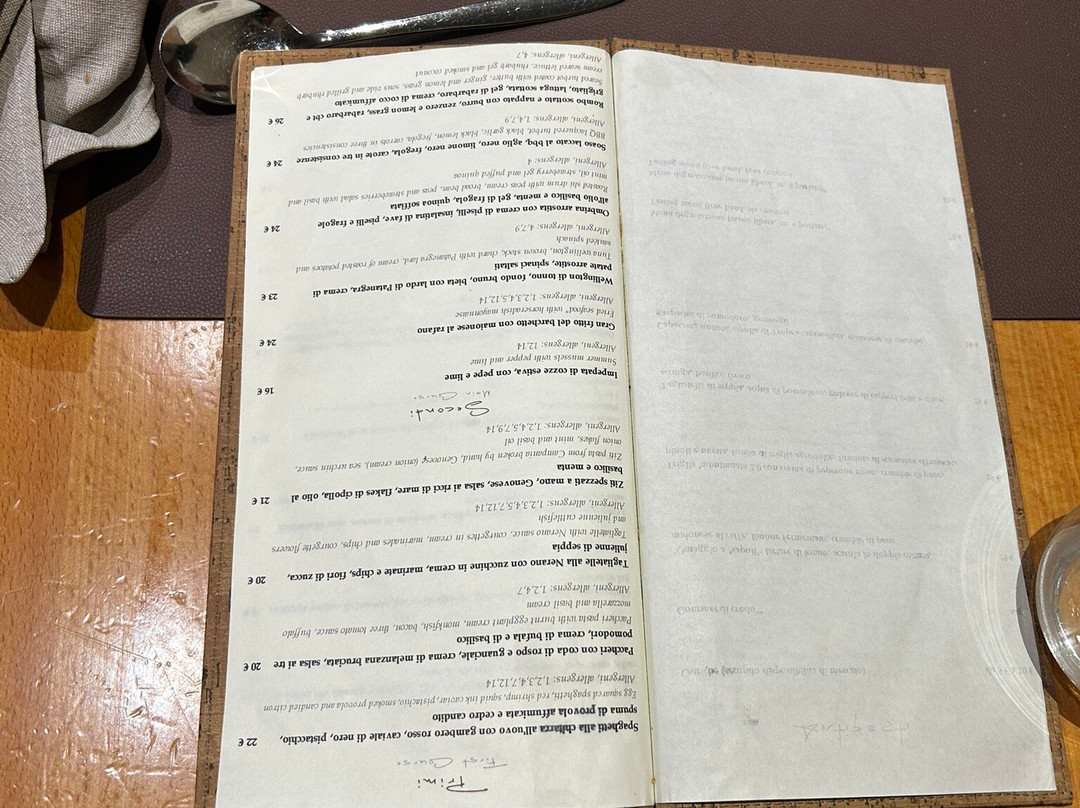 Primi
First Course
Spaghetti alla chitarra all'uovo con gambero rosso, caviale di nero, pistacchio, 22 €
spuma di provola affumicata e cedro candito
Egg squared spaghetti, red shrimp, squid ink caviar, pistachio, smoked provola and candied citron
Allergeni, allergens: 1,2,3,4,7,12,14
Paccheri con coda di rospo e guanciale, crema di melanzana bruciata, salsa ai tre 20 €
pomodori, crema di bufala e di basilico
Paccheri pasta with burnt eggplant cream, monkfish, bacon, three tomato sauce, buffalo
mozzarella and basil cream
Allergeni, allergens: 1,2,4,7
Tagliatelle alla Nerano con zucchine in crema, marinate e chips, fiori di zuca, 20 €
julienne di seppia
Tagliatelle with Nerano sauce, courgettes in cream, marinades and chips, courgette flowers
and julienne cuttlefish
Allergeni, allergens: 1,2,3,4,5,7,12,14
Ziti spezzati a mano, Genovese, salsa ai ricci di mare, flakes di cipolla, olio al 21 €
basilico e menta
Ziti pasta from Campania broken by hand, Genovese (onion cream), sea urchin sauce,
onion flakes, mint and basil oil
Allergeni, allergens: 1,2,4,5,7,9,14
Secondi
Main Course
Impepata di cozze estiva, con pepe e lime 16 €
Summer mussels with pepper and lime
Allergeni, allergens: 12,14
Gran fritto del barchetto con maionese al rafano 24 €
Fried seafood* with horseradish mayonnaise
Allergeni, allergens: 1,2,3,4,5,12,14
Wellington di tonno, fondo bruno, bieta con lardo di Patanegra, crema di 23 €
patate arrostite, spinaci saltati
Tuna wellington, brown stock, chard with Patanegra lard, cream of roasted potatoes and
sautéed spinach
Allergeni, allergens: 4,7,9
Ombrina arrostita con crema di piselli, insalatina di fave, piselli e fragole 24 €
all'olio basilico e menta, gel di fragola, quinoa soffiata
Roasted shi drum with peas cream, broad bean, peas and strawberries salad with basil and
mint oil, strawberry gel and puffed quinoa
Allergeni, allergens: 4
Soaso laccato al bbq, aglio nero, limone nero, fregola, carote in tre consistenze 24 €
BBQ lacquered turbot, black garlic, black lemon, fregola, carrots in three consistencies
Allergeni, allergens: 1,4,7,9
Rombo scottato e nappato con burro, zenzero e lemon grass, rabarbaro cbt e 26 €
grigliato, lattuga scottata, gel di rabarbaro, crema di cocco affumicato
Seared turbot coated with butter, ginger and lemon grass, sous vide and grilled rhubarb
cream seared lettuce, rhubarb gel and smoked coconut
Allergeni, allergens: 4,7